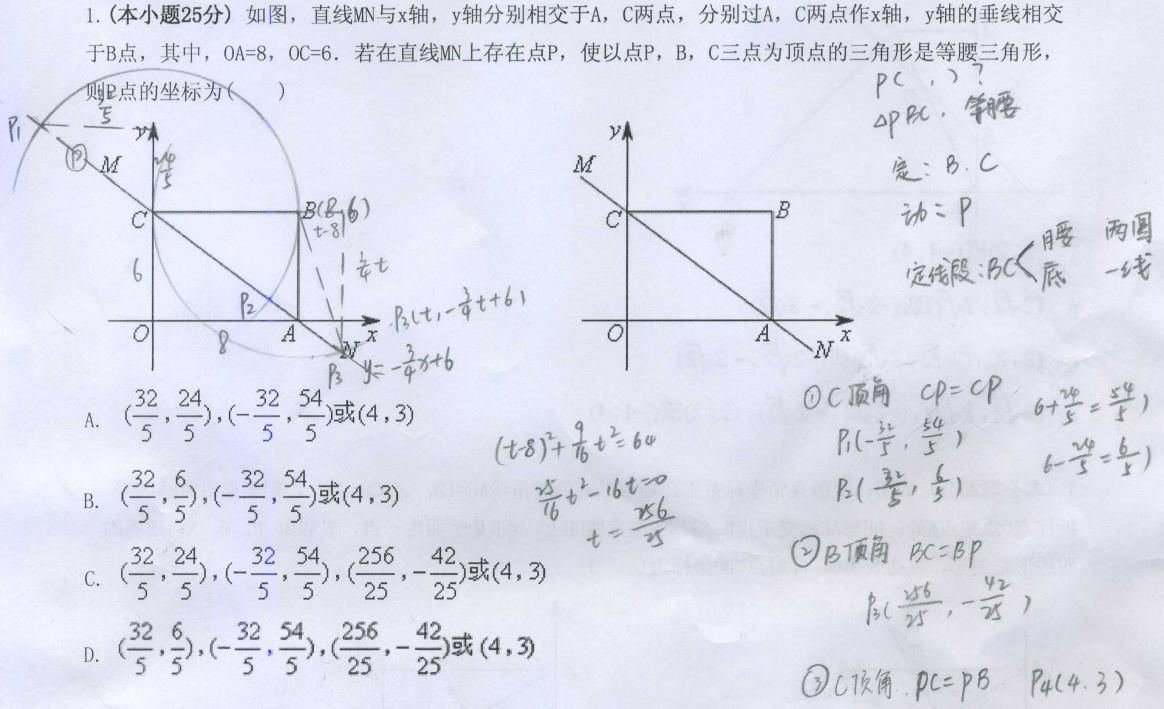 1. (本小题25分) 如图，直线MN与x轴，y轴分别相交于A，C两点，分别过A，C两点作x轴，y轴的垂线相交
于B点，其中，OA=8，OC=6．若在直线MN上存在点P，使以点P，B，C三点为顶点的三角形是等腰三角形，
则P点的坐标为(　　)
PC
?
△PBC. 等腰
定: B. C
动= P
定线段:BC
腰 两圆
底 一线
P₁
32/5
y
P
M
24/5
C
B(8,6)
t-8
6
3/4 t
P₂
P₃(t, -3/4t+6)
O
8
A
x
N
P₃
y=-3/4x+6
y
M
C
B
O
A
x
N
A. (32/5, 24/5), (-32/5, 54/5)或(4, 3)
B. (32/5, 6/5), (-32/5, 54/5)或(4, 3)
C. (32/5, 24/5), (-32/5, 54/5), (256/25, -42/25)或(4, 3)
D. (32/5, 6/5), (-32/5, 54/5), (256/25, -42/25)或 (4, 3)
(t-8)²+9/16t²=64
25/16t²-16t=0
t=256/25
①C顶角 CP=CP
P₁(-32/5, 54/5)
P₂(32/5, 6/5)
6+24/5=54/5)
6-24/5=6/5)
②B顶角 BC=BP
P₃(256/25, -42/25)
③C顶角. PC=PB P₄(4.3)